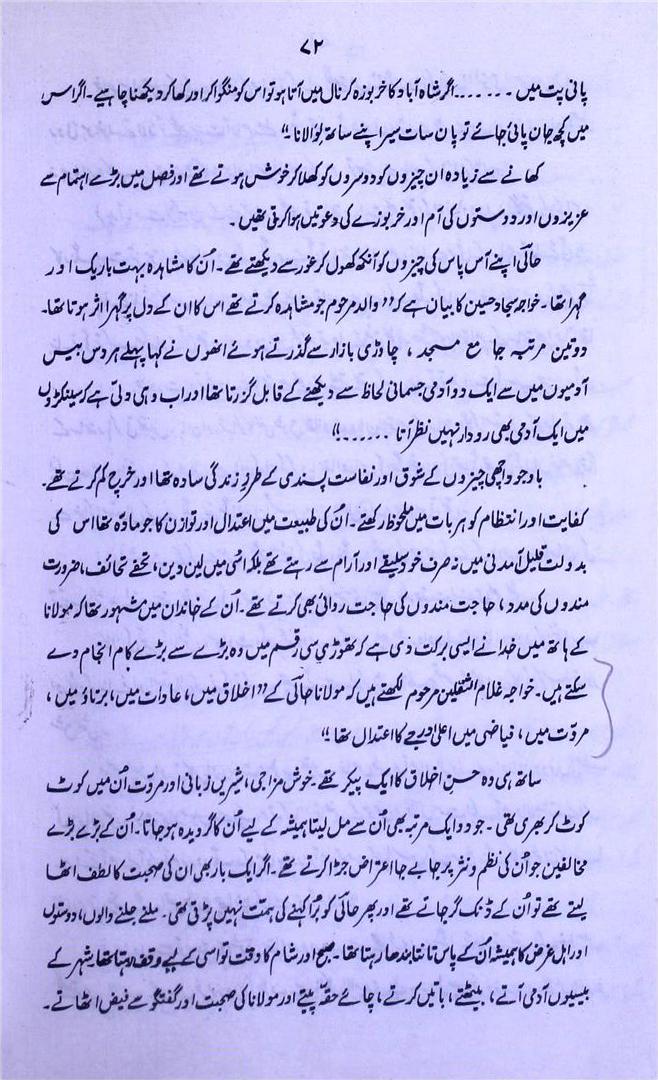 ۷۲
پانی پت میں ....... اگر شاہ آباد کا خربوزہ کرنال میں آتا ہو تو اس کو منگوا کر اور کھا کر دیکھنا چاہیے۔ اگر اس
میں کچھ جان پائی جائے تو پان سات سیر اپنے ساتھ لوالانا۔"
کھانے سے زیادہ ان چیزوں کو دوسروں کو کھلا کر خوش ہوتے تھے اور فصل میں بڑے اہتمام سے
عزیزوں اور دوستوں کی آم اور خربوزے کی دعوتیں ہوا کرتی تھیں۔
حالی اپنے آس پاس کی چیزوں کو آنکھ کھول کر غور سے دیکھتے تھے۔ اُن کا مشاہدہ بہت باریک اور
گہرا تھا۔ خواجہ سجاد حسین کا بیان ہے کہ "والد مرحوم جو مشاہدہ کرتے تھے اس کا ان کے دل پر گہرا اثر ہوتا تھا۔
دو تین مرتبہ جامع مسجد، چاوڑی بازار سے گذرتے ہوئے انھوں نے کہا پہلے ہر دس بیس
آدمیوں میں سے ایک دو آدمی جسمانی لحاظ سے دیکھنے کے قابل گزرتا تھا اور اب وہی دلّی ہے کہ سینکڑوں
میں ایک آدمی بھی رودار نہیں نظر آتا ......"
باوجود اچھی چیزوں کے شوق اور نفاست پسندی کے طرزِ زندگی سادہ تھا اور خرچ کم کرتے تھے۔
کفایت اور انتظام کو ہر بات میں ملحوظ رکھتے۔ اُن کی طبیعت میں اعتدال اور توازن کا جو مادّہ تھا اس کی
بدولت قلیل آمدنی میں نہ صرف خود سلیقے اور آرام سے رہتے تھے بلکہ اسی میں لین دین، تحفے تحائف، ضرورت
مندوں کی مدد، حاجت مندوں کی حاجت روائی بھی کرتے تھے۔ اُن کے خاندان میں مشہور تھا کہ مولانا
کے ہاتھ میں خدا نے ایسی برکت دی ہے کہ تھوڑی سی رقم میں وہ بڑے سے بڑے کام انجام دے
سکتے ہیں۔ خواجہ غلام الثقلین مرحوم لکھتے ہیں کہ مولانا حالی کے "اخلاق میں، عادات میں، برتاؤ میں،
مروّت میں، فیاضی میں اعلیٰ درجے کا اعتدال تھا۔"
ساتھ ہی وہ حسنِ اخلاق کا ایک پیکر تھے۔ خوش مزاجی، شیریں زبانی اور مروّت اُن میں کوٹ
کوٹ کر بھری تھی۔ جو دو ایک مرتبہ بھی اُن سے مل لیتا ہمیشہ کے لیے اُن کا گرویدہ ہو جاتا۔ اُن کے بڑے بڑے
مخالفین جو اُن کی نظم و نثر پر جا بے جا اعتراض جڑا کرتے تھے۔ اگر ایک بار بھی ان کی صحبت کا لطف اٹھا
لیتے تھے تو اُن کے ڈنک گر جاتے تھے اور پھر حالی کو بُرا کہنے کی ہمت نہیں پڑتی تھی۔ ملنے جلنے والوں، دوستوں
اور اہلِ غرض کا ہمیشہ اُن کے پاس تانتا بندھا رہتا تھا۔ صبح اور شام کا وقت تو اسی کے لیے وقف رہتا تھا۔ شہر کے
بیسیوں آدمی آتے، بیٹھتے، باتیں کرتے، چائے حقّہ پیتے اور مولانا کی صحبت اور گفتگو سے فیض اٹھاتے۔